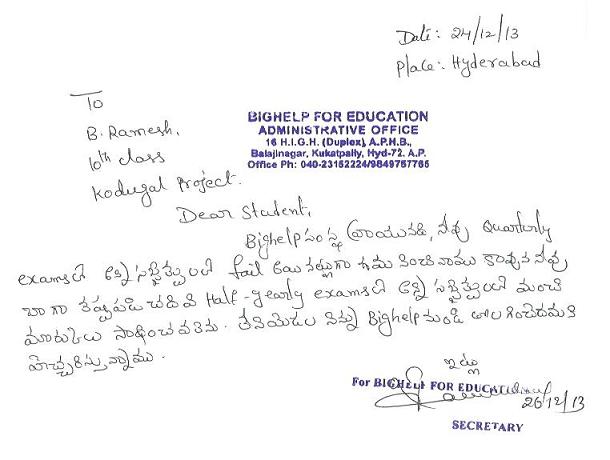 Date: 24/12/13
Place:- Hyderabad
To
B. Ramesh,
10th class
Kodugal Project.
BIGHELP FOR EDUCATION
ADMINISTRATIVE OFFICE
16 H.I.G.H. (Duplex), A.P.H.B.,
Balajinagar, Kukatpally, Hyd-72. A.P.
Office Ph: 040-23152224/9849757765
Dear Student,
Bighelp సంస్థ వ్రాయునది, నీవు Quarterly
examsలో అన్ని సబ్జెక్ట్స్ లలో fail అయినట్లుగా గమనించినాము కావున నీవు
బాగా కష్టపడి చదివి Half-yearly examsలో అన్ని సబ్జెక్ట్స్ లలో మంచి
మార్కులు సాధించవలెను. లేనియెడల నిన్ను Bighelp నుండి తొలగించెదమని
హెచ్చరిస్తున్నాము.
ఇట్లు
For BIGHELP FOR EDUCATION
26/12/13
SECRETARY